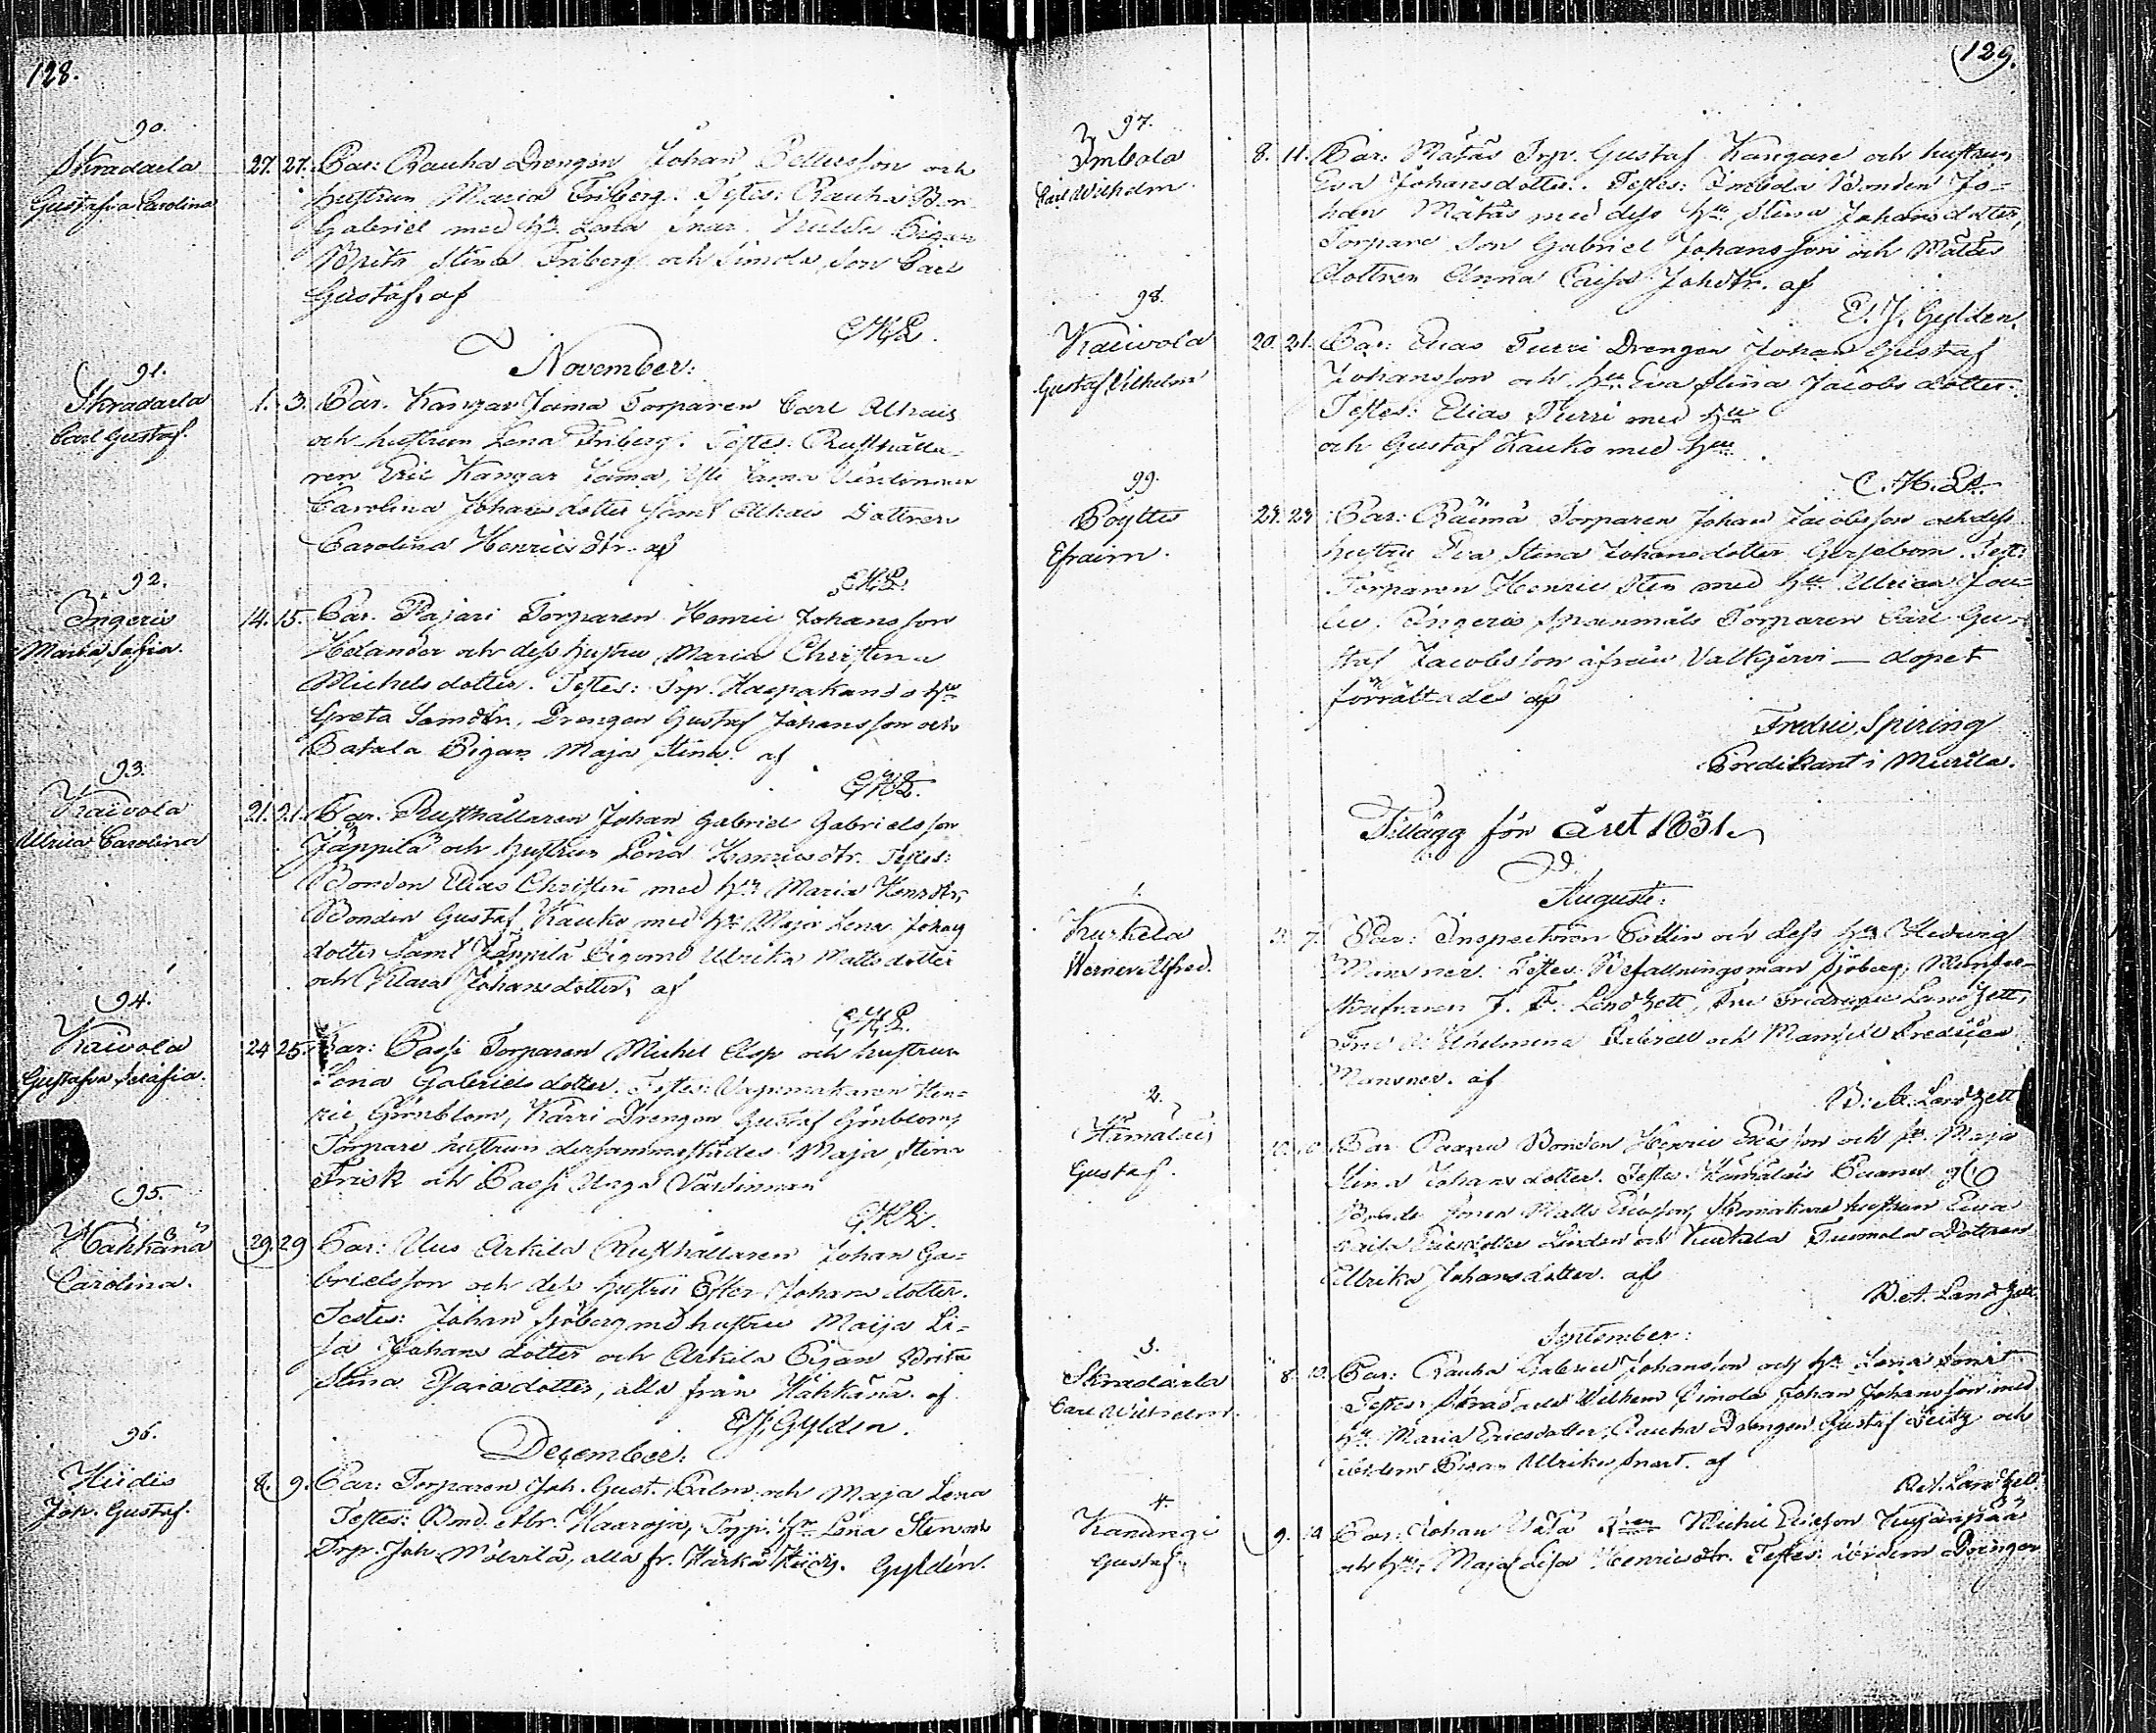 128.
90.
Skradarla
Gustafva Carolina
27. 27. Par: Rauha Drengen Johan Pettersson och
hustrun Maria Friberg. Testes: Rauha Bon.
Gabriel med hu Lena Snar. Pigan
Brita Stina Friberg och Simola Son Carl
Gustaf, af
CHL.
November:
91.
Skradarla
Carl Gustaf.
1. 3. Par. Kangar Jama Torparen Carl Alhais
och hustrun Lena Friberg. Testes: Rusthålla-
ren Eric Kangar Jama, Värdinnan
Carolina Johansdotter samt Alhais Dottren
Carolina Henricsdtr. af
CHL.
92.
Ingeris
Maria Sofia.
14. 15. Par. Pajari Torparen Henric Johansson
Helander och dess hustru Maria Christina
Michelsdotter. Testes: Trp. Haapakands hu
Greta Simdtr. Drengen Gustaf Johansson och
Batala Pigan Maja Stina. af
CHL.
93.
Kaivola
Ulrica Carolina
21. 21. Par. Rusthållaren Johan Gabriel Gabrielsson
Jäppilä och hustrun Lena Henricsdtr. Testes:
Bonden Elias Christeri med hu Maria Henrdtr,
Bonden Gustaf Kauko med hu Maja Lena Johans
dotter samt Jäppilä Ulrika Mattsdotter
och Clara Johansdotter, af
CHL.
94.
Kaivola
Gustafva Serafia.
24 25. Par: Passi Torparen Michel Alop och hustrun
Lena Gabrielsdotter. Testes: Vagnmakaren Hen-
ric Grönblom, Kärri Drengen Gustaf Grönblom,
Torpare hustrun dersammastädes Maja Stina
Frisk och Passi Unga Värdinnan
CHL.
95.
Hahkana
Carolina.
29. 29 Par: Uus Arkila Rusthållaren Johan Ga-
brielsson och dess hustru Ester Johansdotter.
Testes: Johan Sjöberg med hustru Maija Li-
sa Johansdotter och Arkila Pigan Brita
Stina Esaiadotter, alla från Hahkana. af
E.J. Gylden.
December:
96.
Hiidis
Joh. Gustaf.
8. 9. Par: Torparen Joh. Gust. Palm och Maja Lena
Testes: Bond. Abr. Haaroja, Trp. hu Lena Sten och
Trp. Joh. Mölsilä, alla fr. Härkä Hiidis. Gyldén.
129.
97.
Imbola
Carl Wilhelm.
8. 11. Par: Mätäs Trp. Gustaf Kangare och hustrun
Eva Johansdotter. Testes: Imbola Bonden Jo-
han Mätäs med dess hu Stina Johansdotter,
Torpare Son Gabriel Johansson och Mätäs
dottren Anna Caisa Johdtr. af
E.J. Gylden.
98.
Kaivola
Gustaf Vilhelm
20. 21. Par: Elias Turri Drengen Johan Gustaf
Johansson och hu Eva Stina Jacobsdotter.
Testes: Elias Turri med hu
och Gustaf Kauko med hu
C.H.L.
99.
Pöyttis
Efraim.
Par: Räimä Torparen Johan Jacobsson och dess
hustru Eva Stina Johansdotter Test:
Torparen Henric Sten med hu Ulrica
Ingeris Torparen Carl Gu-
staf Jacobsson ifrån Valkjervi — dopet
förrättades af
Fredric Spiring
Predikant i Murila.
Tillägg för året 1831.
Augusti:
1.
Kurkela
Verner Alfred.
7. Par: Inspectoren Collin och dess hu Hedvig
Mansner. Testes: Befallningsman Sjöberg,
J. F. Landzett, Fru Fredrique Landzett,
Fru Wilhelmina och Mamsell Fredrica
Mansner. af
B.A. Landzett
2.
Hämäläis
Gustaf.
Par Paanu Bonden Henric Ericsson och hu Maja
Stina Johansdotter. Testes: Hämäläis Paanu
Matts Ericsson, Skomakare hustrun Eva
Caisa Ericsdotter Linden och Kurkela Tuomola Dottren
Ulrika Johansdotter. af
B.A. Landzett.
September:
3.
Skradarla
Carl Wilhelm.
8. 10. Par: Rauha Gabriel Johansson och hu Lena Snärt.
Testes: Skradarla Vilhelm Simola Johan Johansson med
hu Maria Ericsdotter, Rauha Drengen Gustaf och
ibidem Pigan Ulrika Snart. af
B.A. Landzett.
4.
Kanungi
Gustaf.
9. Par: Johan Michel Ericsson
och hu Maja Lisa Henricsdtr. Testes: ibidem Drengen